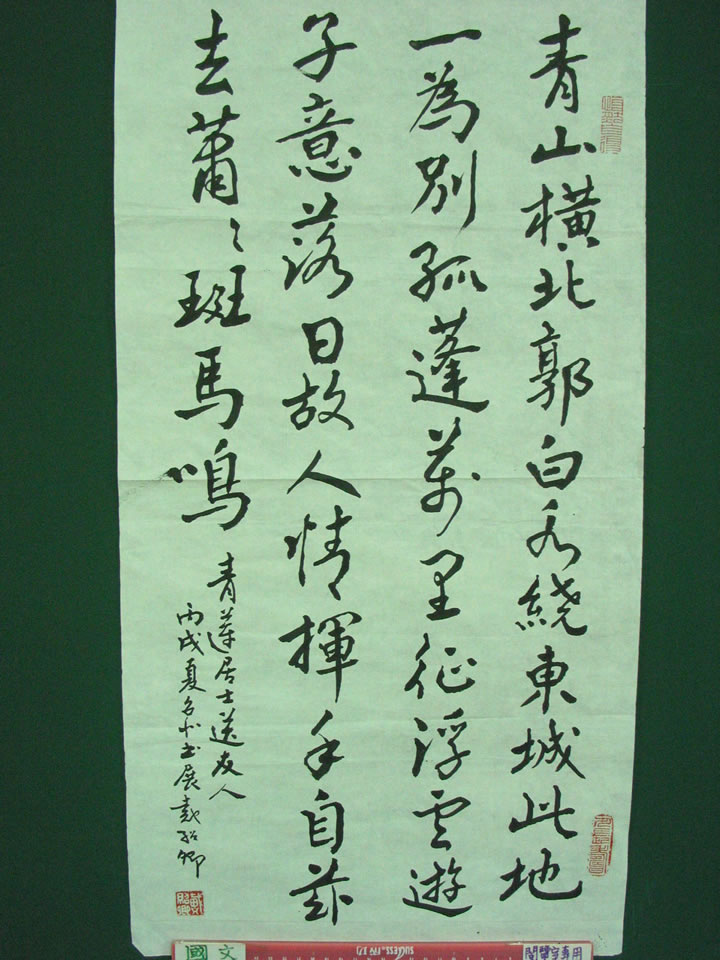 青山橫北郭白水繞東城此地
一為別孤蓬萬里征浮雲遊
子意落日故人情揮手自茲
去蕭〻斑馬鳴
青蓮居士送友人
丙戌夏
書展戴
國文
SUCCESS